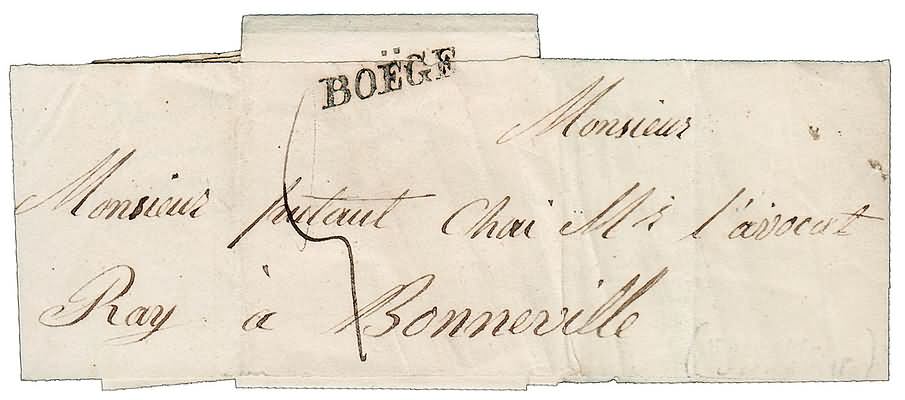 BOËGE
Monsieur
Monsieur putaut Chai Mr l'avocat
Ray à Bonneville